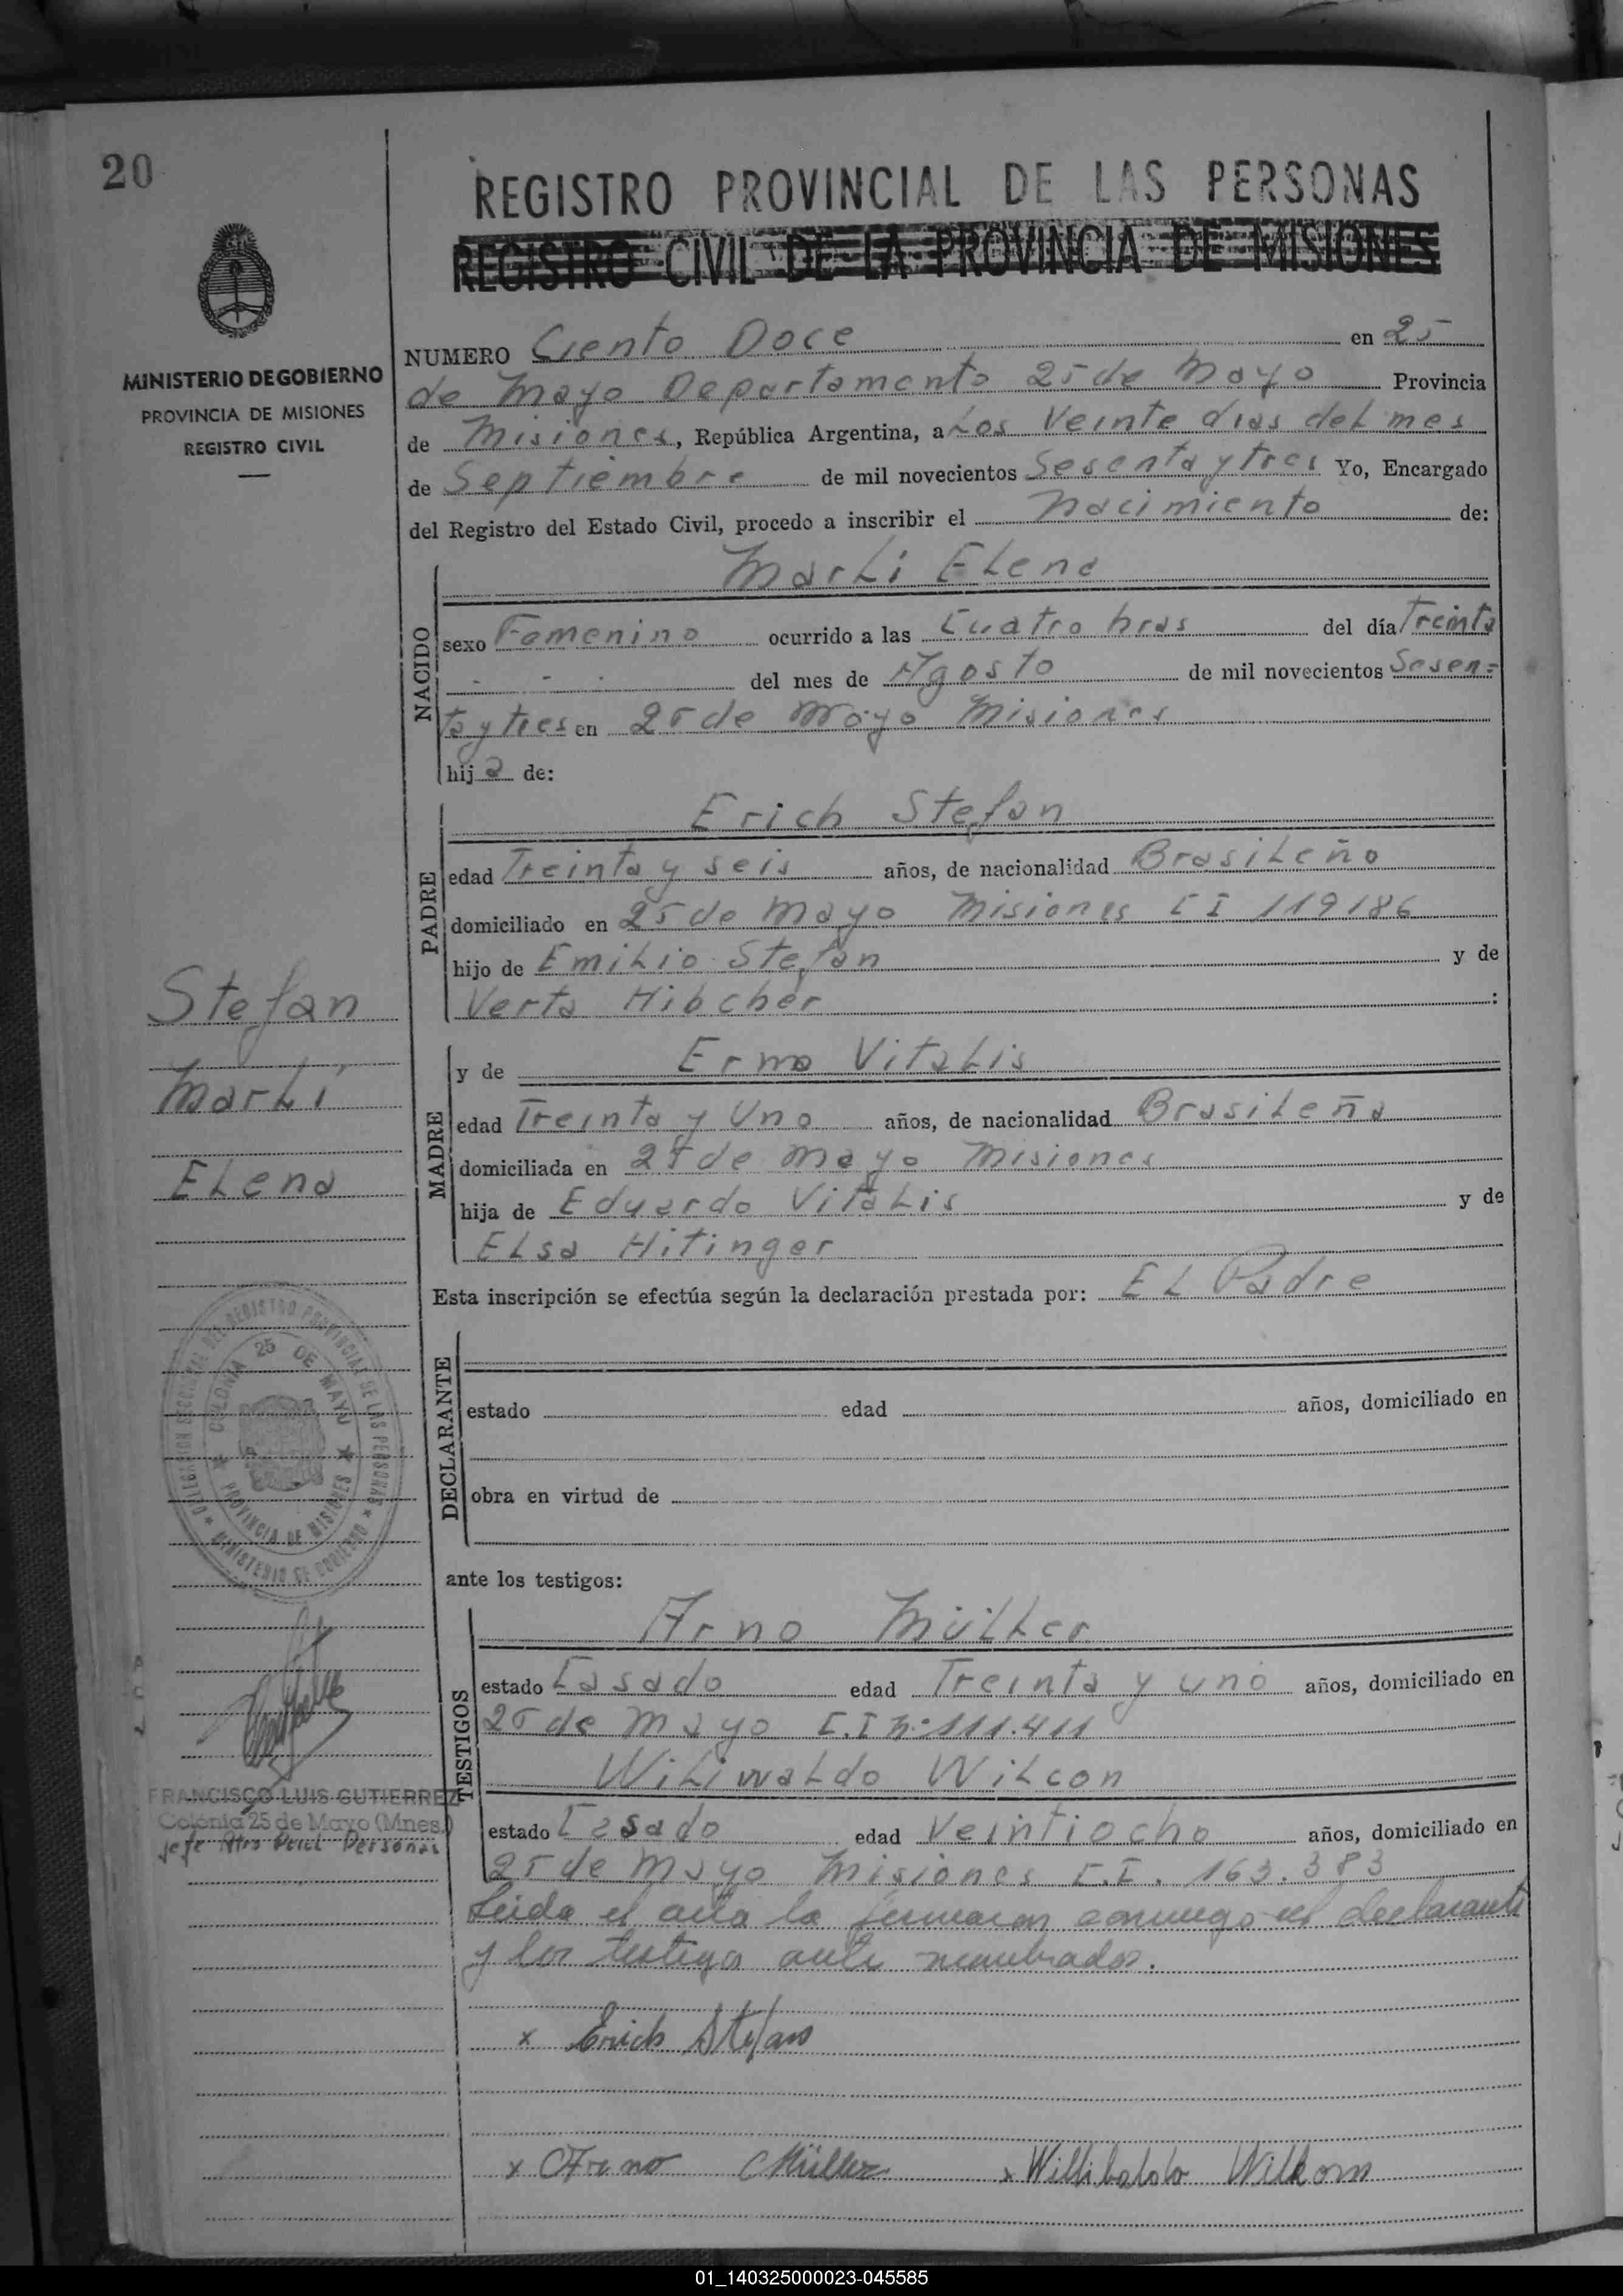 20
REGISTRO PROVINCIAL DE LAS PERSONAS
REGISTRO CIVIL DE LA PROVINCIA DE MISIONES
MINISTERIO DE GOBIERNO
PROVINCIA DE MISIONES
REGISTRO CIVIL
NUMERO Ciento Doce en 25
de Mayo Departamento 25 de Mayo Provincia
de Misiones, República Argentina, a Los Veinte dias del mes
de Septiembre de mil novecientos Sesenta y tres Yo, Encargado
del Registro del Estado Civil, procedo a inscribir el Nacimiento de:
NACIDO
Marli Elena
sexo Femenino ocurrido a las Cuatro hras del día Treinta
- - - del mes de Agosto de mil novecientos Sesen=
ta y tres en 25 de Mayo Misiones
hija de:
PADRE
Erich Stefan
edad Treinta y seis años, de nacionalidad Brasileño
domiciliado en 25 de Mayo Misiones CI 119186
hijo de Emilio Stefan y de
Verta Hibcher :
Stefan
Marlí
Elena
MADRE
y de Erma Vitalis
edad Treinta y Uno años, de nacionalidad Brasileña
domiciliada en 25 de Mayo Misiones
hija de Eduardo Vitalis y de
Elsa Hitinger
Esta inscripción se efectúa según la declaración prestada por: El Padre
DECLARANTE
estado edad años, domiciliado en
obra en virtud de
DEL REGISTRO PROVINCIAL DE LAS PERSONAS
COLONIA 25 DE MAYO
PROVINCIA DE MISIONES
MINISTERIO DE GOBIERNO
ante los testigos:
TESTIGOS
Arno Müller
estado Casado edad Treinta y uno años, domiciliado en
25 de Mayo C.I Nº 111.411
Wiliwaldo Wilcon
estado Casado edad Veintiocho años, domiciliado en
25 de Mayo Misiones C.I. 163.383
FRANCISCO LUIS GUTIERREZ
Colonia 25 de Mayo (Mnes.)
Jefe Personas
Leida el acta la firmaron conmigo el declarante
y los testigos ante nombrados.
x Erich Stefan
x Arno Müller x Willibaldo Wilkom
01_140325000023-045585